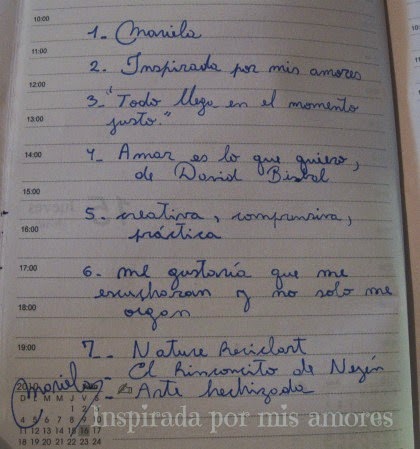 10:00
1- Mariela
11:00
2. Inspirada por mis amores
12:00
3- "Todo llega en el momento
13:00
justo."
14:00
4- Amar es lo que quiero,
de David Bisbal
15:00
5- creativa, comprensiva,
16:00
práctica
17:00
6- me gustaría que me
escucharan y no solo me
18:00
oigan
19:00
7- Nature Reciclart
- El Rinconcito de Nezin
Mariela - Arte hechizada
D M M J V S
1 2 3
4 5 6 7 8 9 10
11 12 13 14 15 16 17
18 19 20 21 22 23 24
Inspirada por mis amores